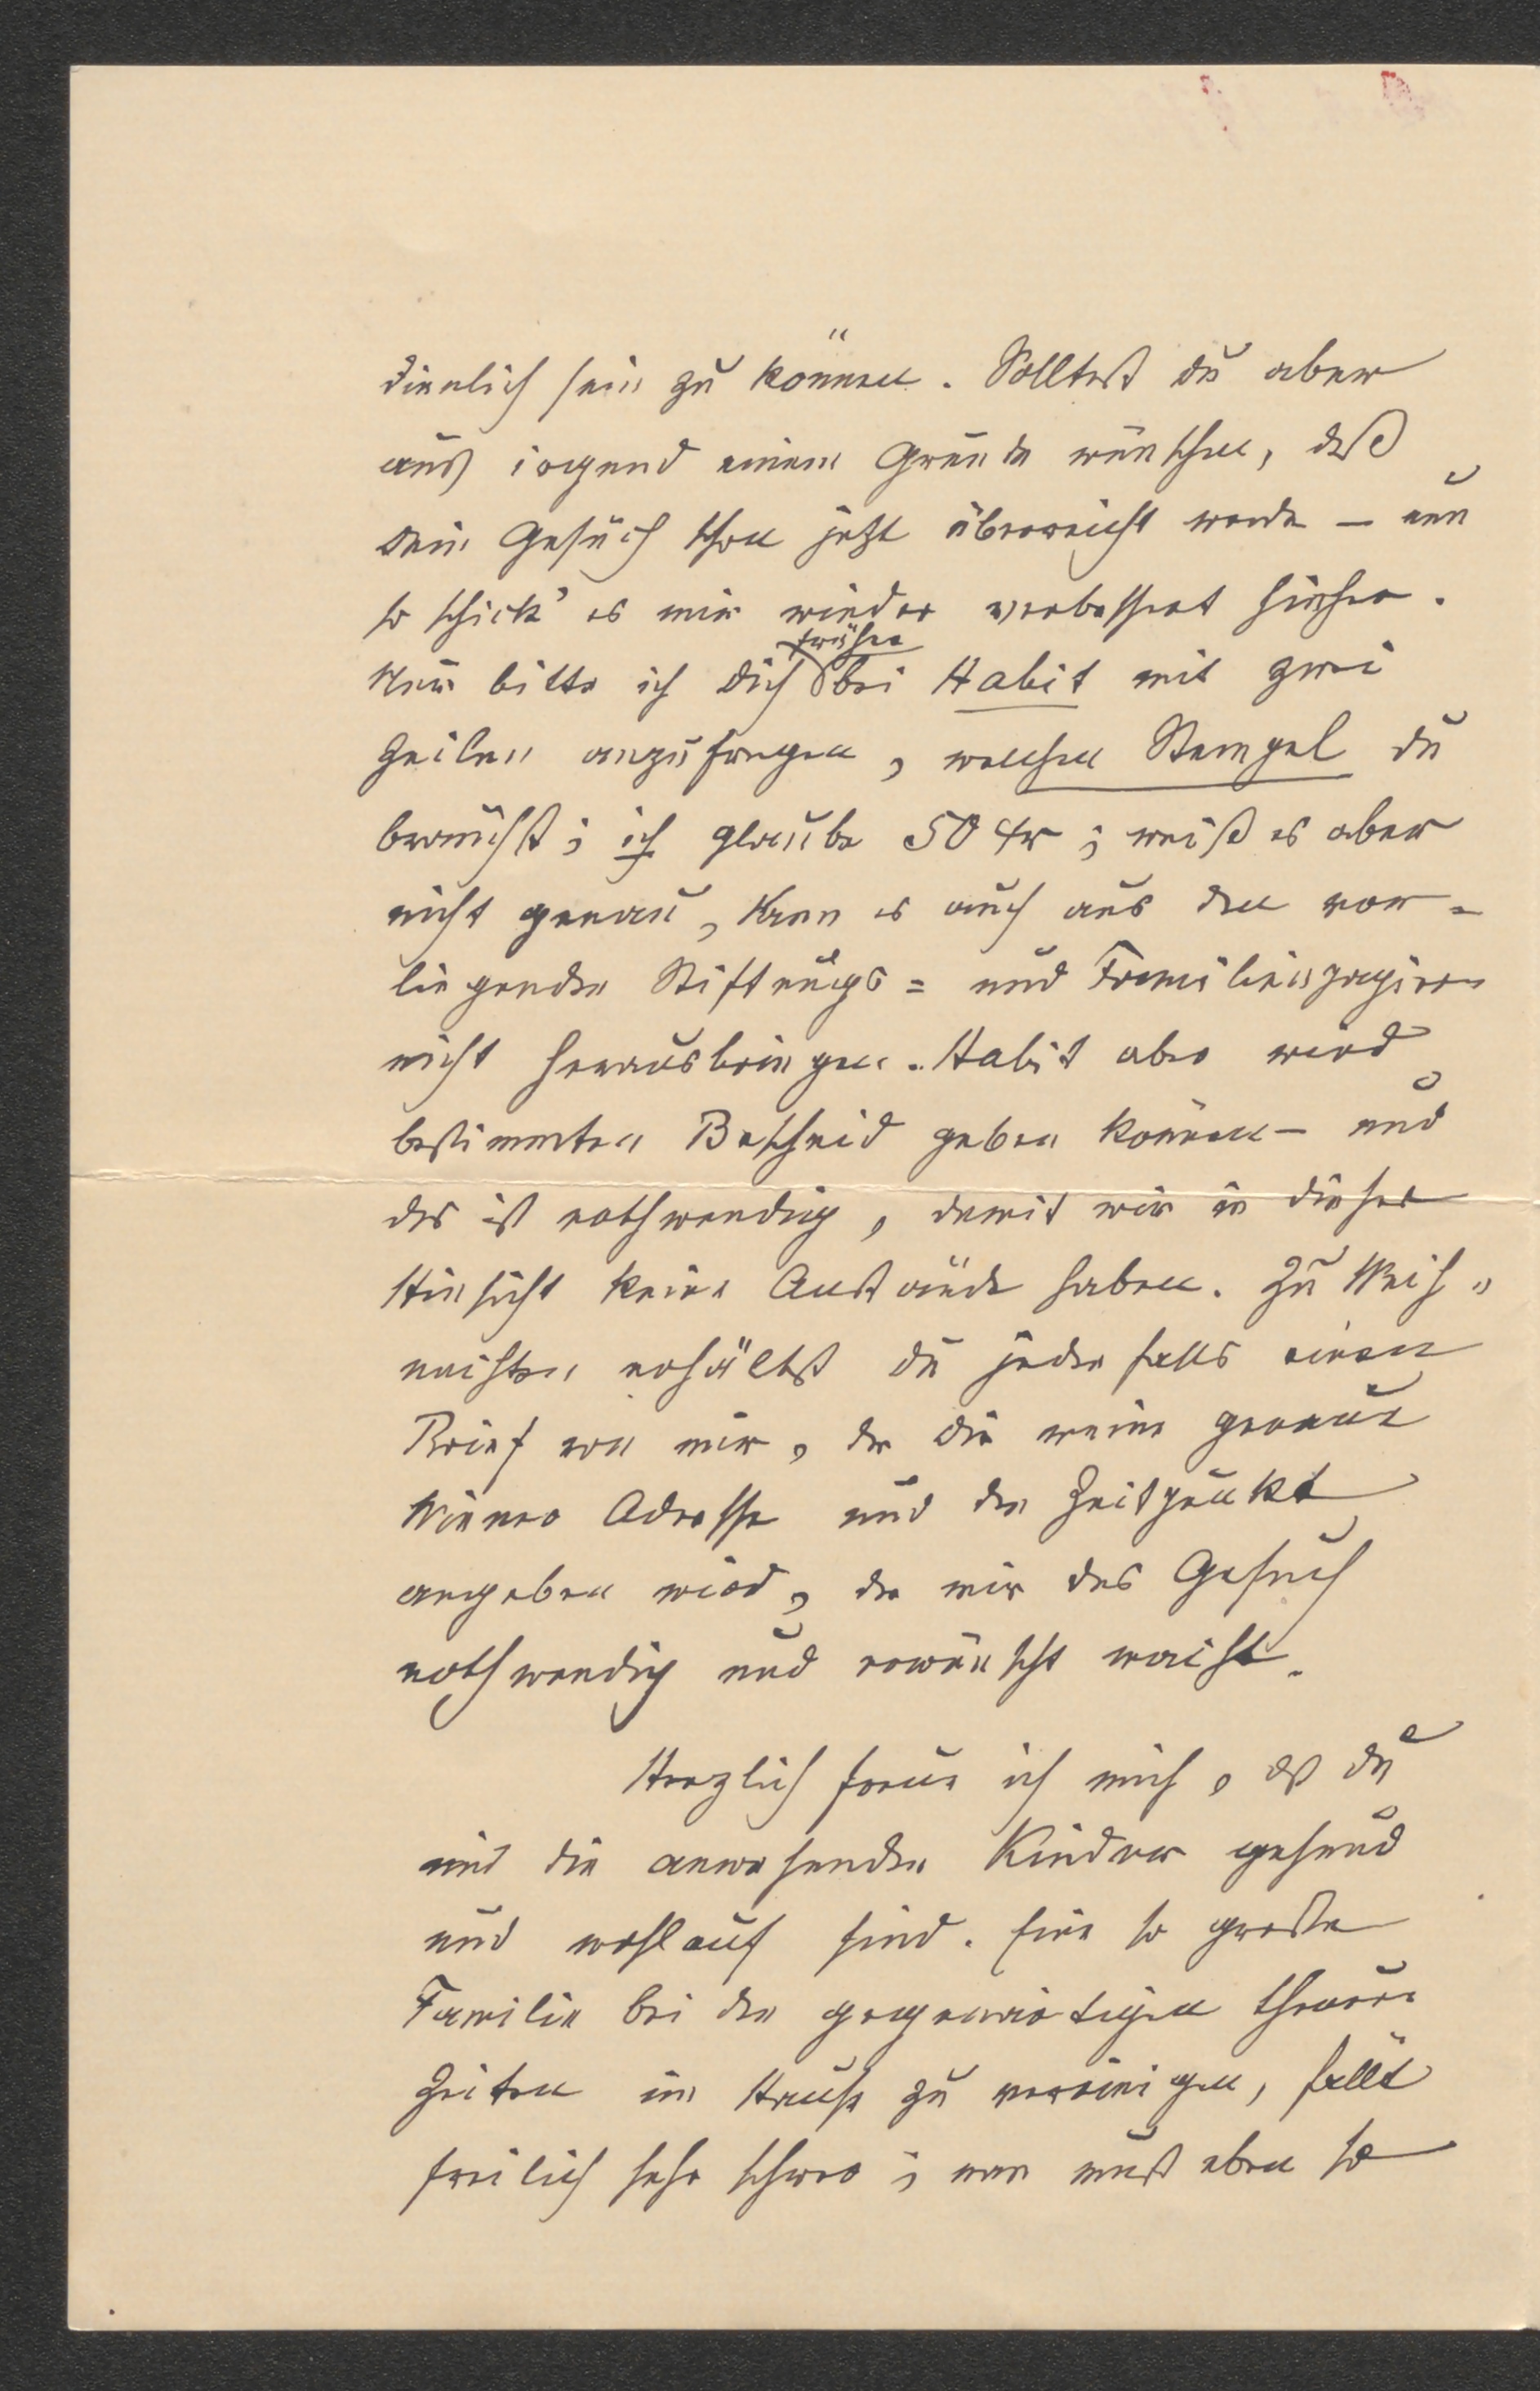 dienlich sein zu können. Solltest du aber
aus irgend einem Grunde wünschen, daß
dein Gesuch schon jetzt überreicht werde — nun
so schick' es mir wieder verbessert hieher.
Nur bitte ich dich früher bei Habit mit zwei
Zeilen anzufragen, welchen Stempel du
brauchst; ich glaube 50 kr; weiß es aber
nicht genau, kann es auch aus den vor=
liegenden Stiftungs= und Familienpapieren
nicht herausbringen. Habit aber wird
bestimmten Bescheid geben können — und
das ist nothwendig, damit wir in dieser
Hinsicht keine Anstände haben. Zu Weih=
nachten erhältst du jedenfalls einen
Brief von mir, der dir meine genaue
Wiener Adresse und den Zeitpunkt
angeben wird, der mir das Gesuch
nothwendig und erwünscht macht.
Herzlich freue ich mich, daß du
und die anwesenden Kinder gesund
und wohlauf sind. Eine so große
Familie bei den gegenwärtigen theuren
Zeiten im Hause zu vereinigen, fällt
freilich sehr schwer; man muß eben so